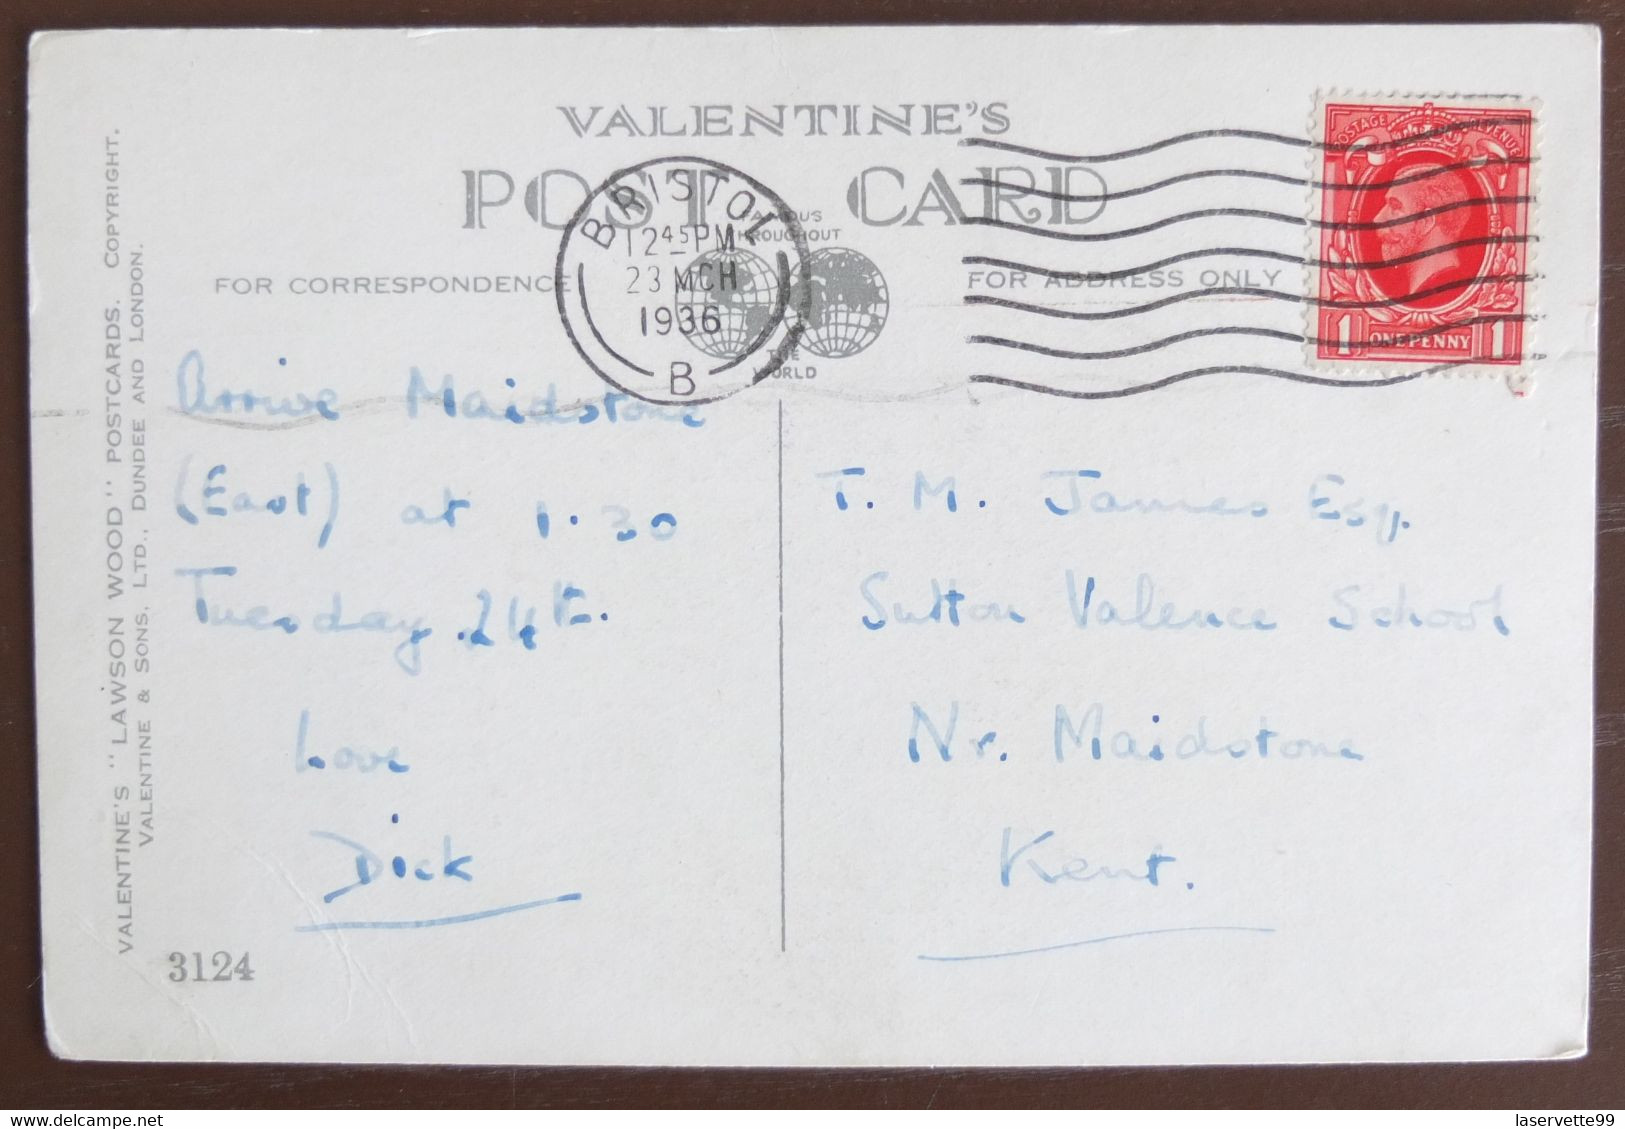 VALENTINE'S
POST CARD
FAMOUS
THROUGHOUT
THE
WORLD
FOR CORRESPONDENCE
FOR ADDRESS ONLY
BRISTOL
12 45 PM
23 MCH
1936
B
POSTAGE REVENUE
1 ONE PENNY 1
VALENTINE'S "LAWSON WOOD" POSTCARDS. COPYRIGHT.
VALENTINE & SONS, LTD., DUNDEE AND LONDON.
Arrive Maidstone
(East) at 1.30
Tuesday 24th.
Love
Dick
3124
T. M. James Esq.
Sutton Valence School
Nr. Maidstone
Kent.
delcampe.net
laservette99